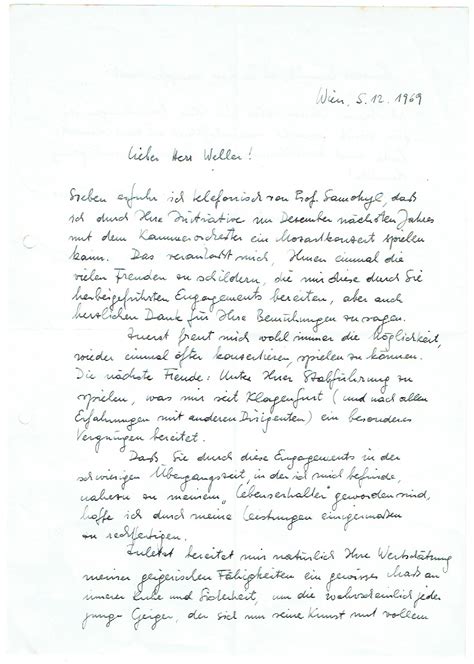 Wien, 5.12.1969
Lieber Herr Weller!
Soeben erfuhr ich telefonisch von Prof. Samohyl, daß
ich durch Ihre Initiative im Dezember nächsten Jahres
mit dem Kammerorchester ein Mozartkonzert spielen
kann. Das veranlaßt mich, Ihnen einmal die
vielen Freuden zu schildern, die mir diese durch Sie
herbeigeführten Engagements bereiten, aber auch
herzlichen Dank für Ihre Bemühungen zu sagen.
Zuerst freut mich wohl immer die Möglichkeit,
wieder einmal öfter konzertieren, spielen zu können.
Die nächste Freude: Unter Ihrer Stabführung zu
spielen, was mir seit Klagenfurt (und nach allen
Erfahrungen mit anderen Dirigenten) ein besonderes
Vergnügen bereitet.
Daß Sie durch diese Engagements in der
schwierigen Übergangszeit, in der ich mich befinde,
nahezu zu meinem „Lebenserhalter" geworden sind,
hoffe ich durch meine Leistungen einigermaßen
zu rechtfertigen.
Zuletzt bereitet mir natürlich Ihre Wertschätzung
meiner geigerischen Fähigkeiten ein gewisses Maß an
innerer Ruhe und Sicherheit, um die wahrscheinlich jeder
junge Geiger, der sich um seine Kunst mit vollem